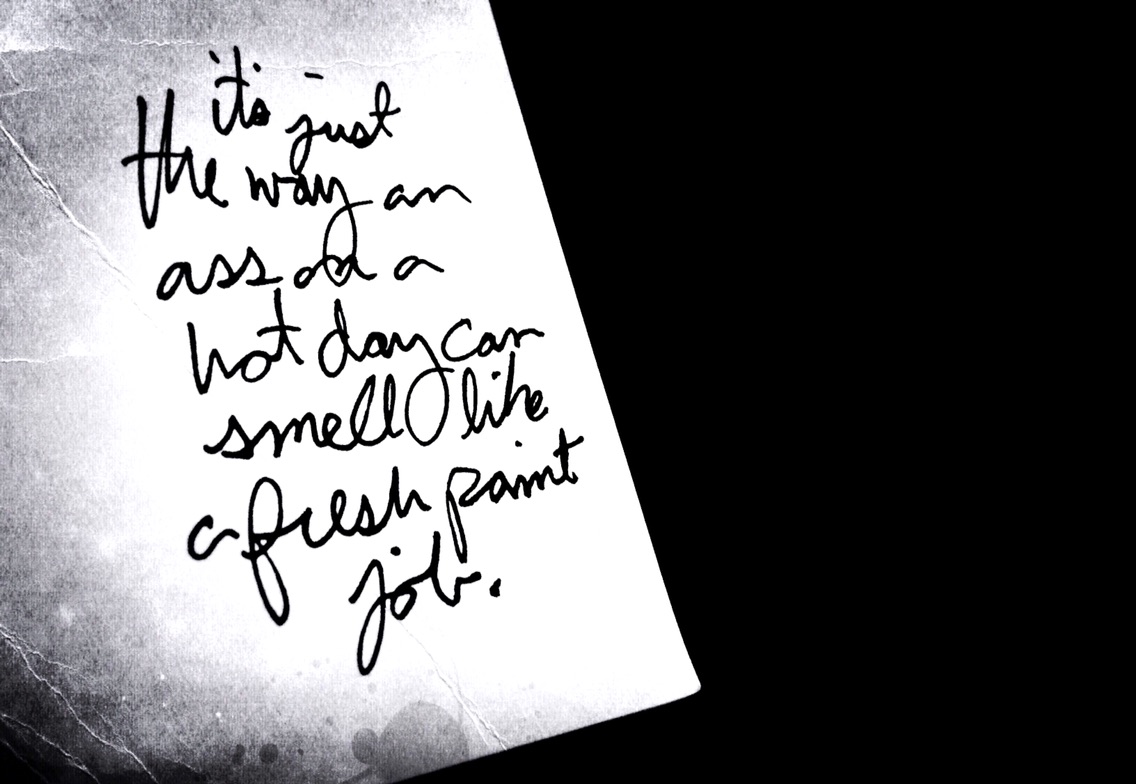 it's just
the way an
ass on a
hot day can
smell like
a fresh paint
job.